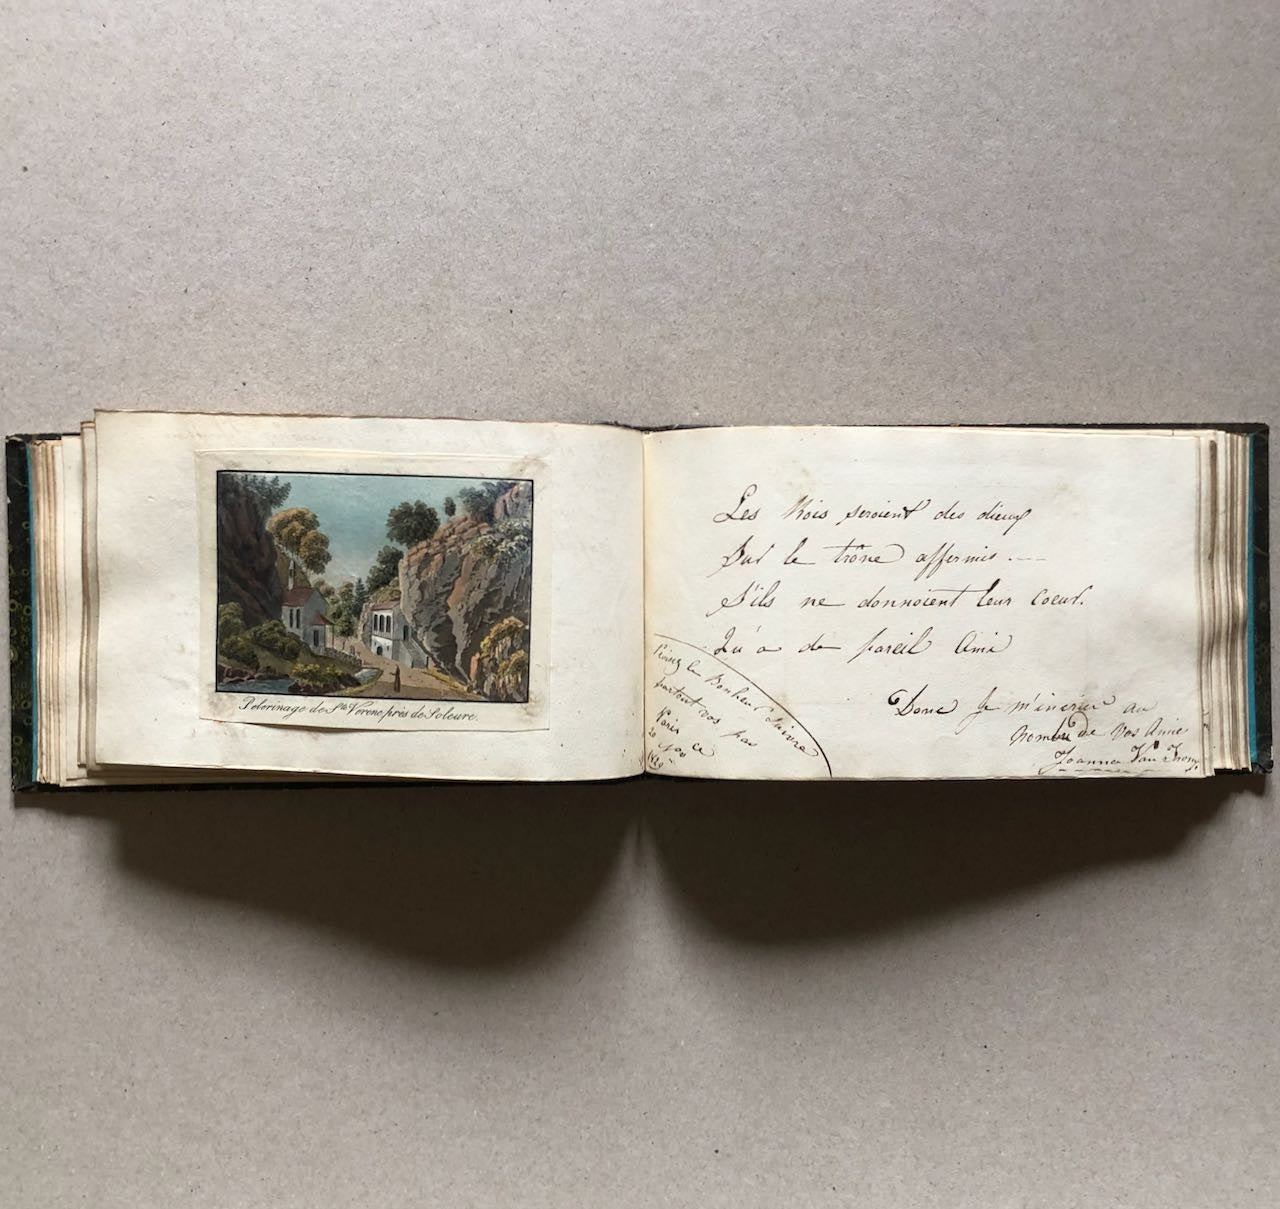 Pelerinage de Ste. Verene près de Soleure.
Les Rois seroient des dieux
Sur le trône affermis ----
S'ils ne donnoient leur coeur.
Qu'a de pareil Ami
Donc Je m'inscrier au
Nombre de Vos Amies
Joanna Van
Puisse le Bonheur Suivre
partout vos pas
Paris
20 ce